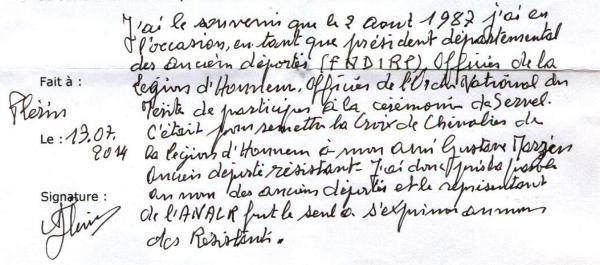 J'ai le souvenir que le 2 aout 1987 j'ai eu
l'occasion, en tant que président départemental
des anciens déportés (FNDIRP), Officier de la
Légion d'Honneur, Officier de l'Ordre National du
Mérite de participer à la cérémonie de Servel.
C'était pour remettre la Croix de Chevalier de
la légion d'Honneur à mon ami Gustave
ancien déporté résistant. J'ai donc pris la parole
au nom des anciens déportés et le représentant
de l'ANACR fut le seul à s'exprimer au nom
des Résistants.
Fait à :
Plérin
Le : 13.07.
2014
Signature :